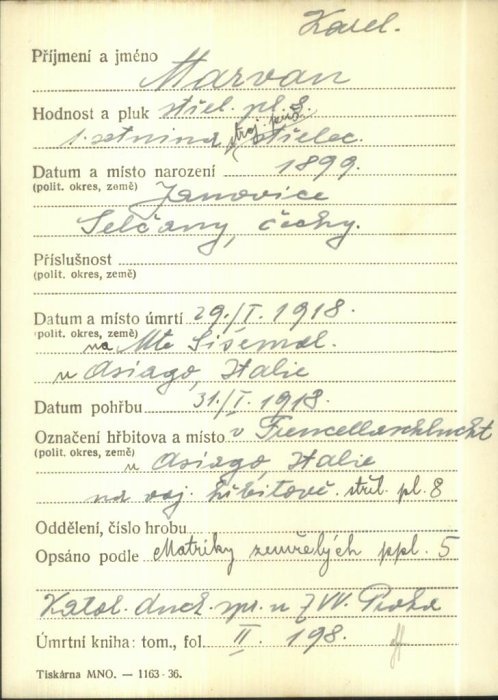 Karel.
Příjmení a jméno Marvan
Hodnost a pluk střel. pl. 8.
1. setnina stroj. puš. střelec.
Datum a místo narození 1899.
(polit. okres, země) Janovice
Selčany, Čechy.
Příslušnost
(polit. okres, země)
Datum a místo úmrtí 29./I. 1918.
(polit. okres, země) na Mte Sisemol.
u Asiago, Italie
Datum pohřbu 31./I. 1918.
Označení hřbitova a místo v Frenzellaschlucht
(polit. okres, země) u Asiago, Italie
na voj. hřbitově. střel. pl. 8
Oddělení, číslo hrobu
Opsáno podle Matriky zemřelých ppl. 5
Katol. duch. spr. u ZVV. Praha
Úmrtní kniha: tom., fol. II. 198.
Tiskárna MNO. — 1163-36.